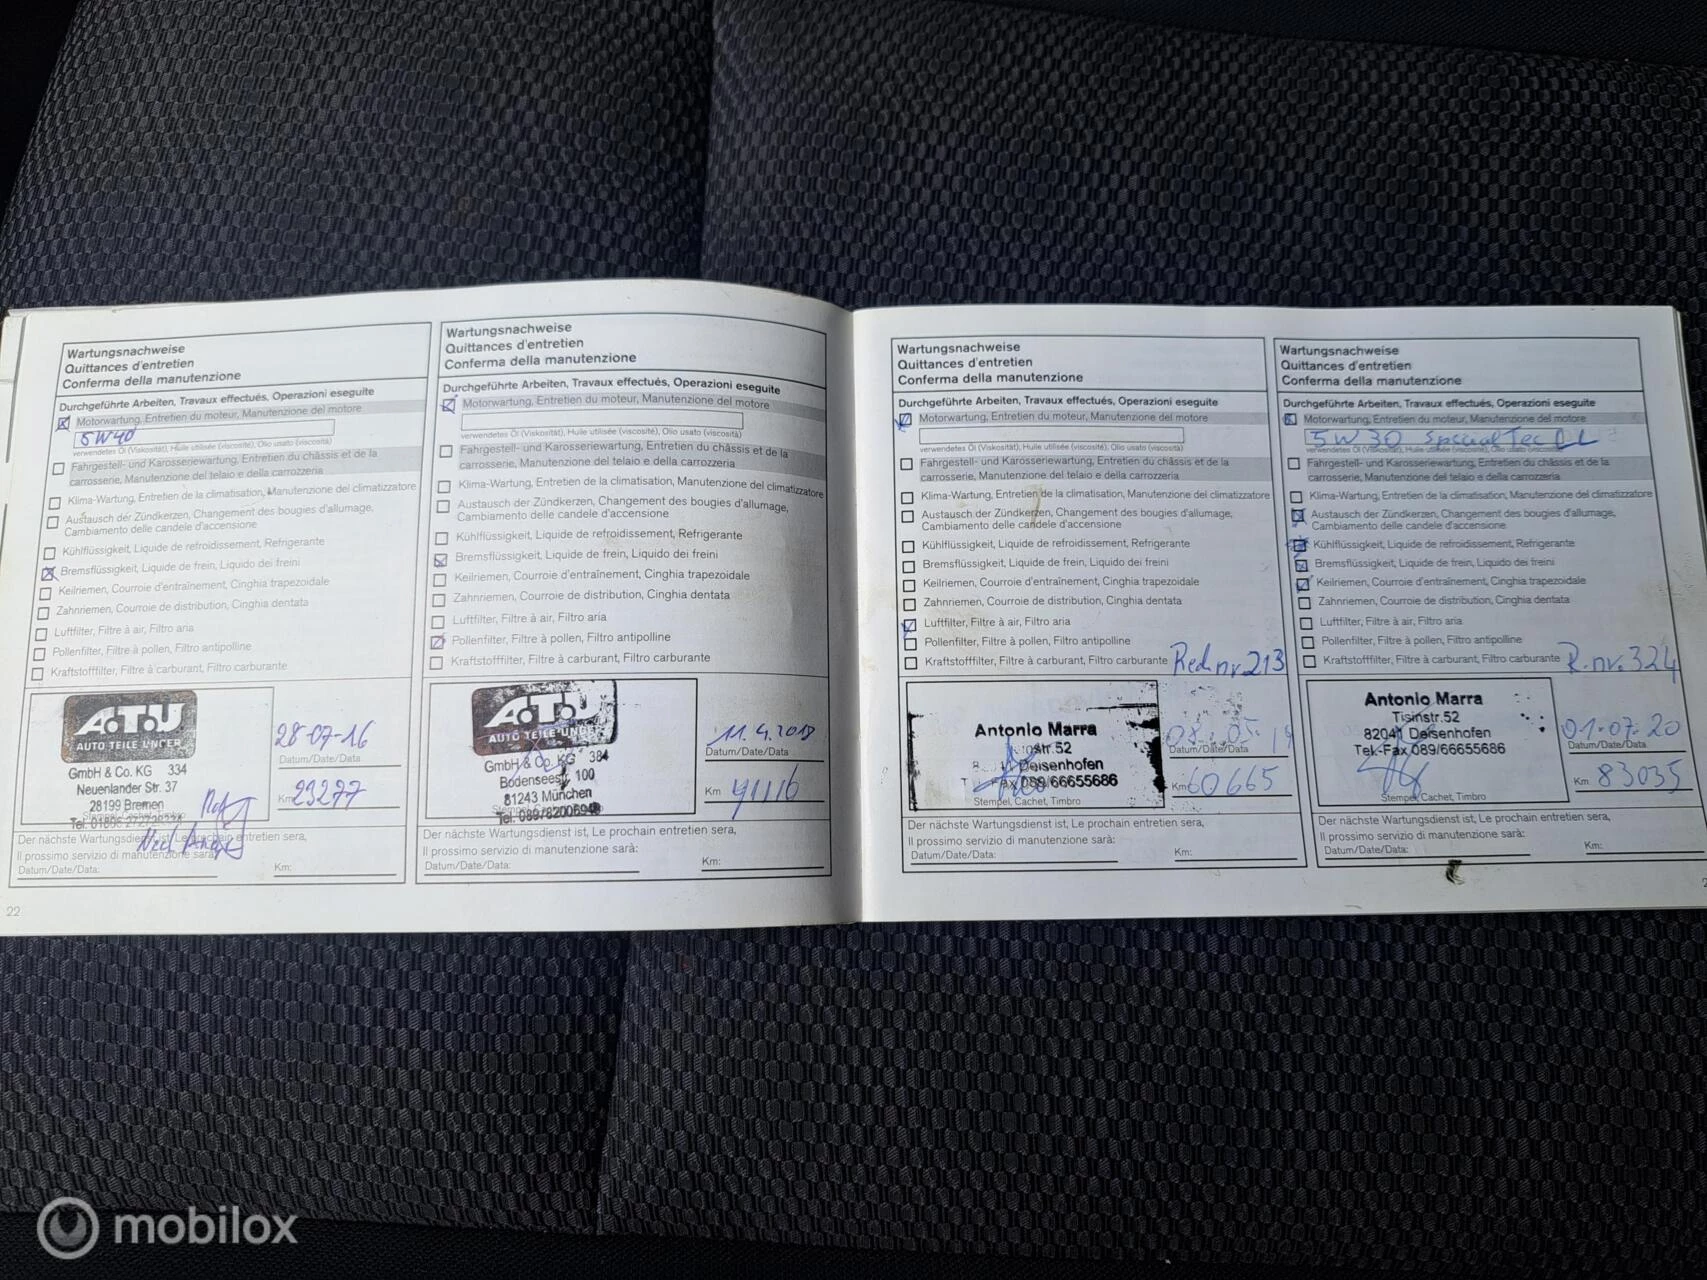 Wartungsnachweise
Quittances d'entretien
Conferma della manutenzione
Durchgeführte Arbeiten, Travaux effectués, Operazioni eseguite
Motorwartung, Entretien du moteur, Manutenzione del motore
5W40
verwendetes Öl (Viskosität), Huile utilisée (viscosité), Olio usato (viscosità)
Fahrgestell- und Karosseriewartung, Entretien du châssis et de la
carrosserie, Manutenzione del telaio e della carrozzeria
Klima-Wartung, Entretien de la climatisation, Manutenzione del climatizzatore
Austausch der Zündkerzen, Changement des bougies d'allumage,
Cambiamento delle candele d'accensione
Kühlflüssigkeit, Liquide de refroidissement, Refrigerante
Bremsflüssigkeit, Liquide de frein, Liquido dei freini
Keilriemen, Courroie d'entraînement, Cinghia trapezoidale
Zahnriemen, Courroie de distribution, Cinghia dentata
Luftfilter, Filtre à air, Filtro aria
Pollenfilter, Filtre à pollen, Filtro antipolline
Kraftstofffilter, Filtre à carburant, Filtro carburante
A.T.U
AUTO TEILE UNGER
GmbH & Co. KG 334
Neuenlander Str. 37
28199 Bremen
28-07-16
Datum/Date/Data
Km 29277
Der nächste Wartungsdienst ist, Le prochain entretien sera,
Il prossimo servizio di manutenzione sarà:
Datum/Date/Data:
Km:
22
Wartungsnachweise
Quittances d'entretien
Conferma della manutenzione
Durchgeführte Arbeiten, Travaux effectués, Operazioni eseguite
Motorwartung, Entretien du moteur, Manutenzione del motore
verwendetes Öl (Viskosität), Huile utilisée (viscosité), Olio usato (viscosità)
Fahrgestell- und Karosseriewartung, Entretien du châssis et de la
carrosserie, Manutenzione del telaio e della carrozzeria
Klima-Wartung, Entretien de la climatisation, Manutenzione del climatizzatore
Austausch der Zündkerzen, Changement des bougies d'allumage,
Cambiamento delle candele d'accensione
Kühlflüssigkeit, Liquide de refroidissement, Refrigerante
Bremsflüssigkeit, Liquide de frein, Liquido dei freini
Keilriemen, Courroie d'entraînement, Cinghia trapezoidale
Zahnriemen, Courroie de distribution, Cinghia dentata
Luftfilter, Filtre à air, Filtro aria
Pollenfilter, Filtre à pollen, Filtro antipolline
Kraftstofffilter, Filtre à carburant, Filtro carburante
A.T.U
AUTO TEILE UNGER
GmbH & Co. KG 384
Bodenseestr. 100
81243 München
Tel. 089/82006948
11.4.2018
Datum/Date/Data
Km 41116
Der nächste Wartungsdienst ist, Le prochain entretien sera,
Il prossimo servizio di manutenzione sarà:
Datum/Date/Data:
Km:
Wartungsnachweise
Quittances d'entretien
Conferma della manutenzione
Durchgeführte Arbeiten, Travaux effectués, Operazioni eseguite
Motorwartung, Entretien du moteur, Manutenzione del motore
verwendetes Öl (Viskosität), Huile utilisée (viscosité), Olio usato (viscosità)
Fahrgestell- und Karosseriewartung, Entretien du châssis et de la
carrosserie, Manutenzione del telaio e della carrozzeria
Klima-Wartung, Entretien de la climatisation, Manutenzione del climatizzatore
Austausch der Zündkerzen, Changement des bougies d'allumage,
Cambiamento delle candele d'accensione
Kühlflüssigkeit, Liquide de refroidissement, Refrigerante
Bremsflüssigkeit, Liquide de frein, Liquido dei freini
Keilriemen, Courroie d'entraînement, Cinghia trapezoidale
Zahnriemen, Courroie de distribution, Cinghia dentata
Luftfilter, Filtre à air, Filtro aria
Pollenfilter, Filtre à pollen, Filtro antipolline
Kraftstofffilter, Filtre à carburant, Filtro carburante Red.nr.213
Antonio Marra
str.52
Deisenhofen
Fax 089/66655686
Stempel, Cachet, Timbro
08.05.19
Datum/Date/Data
Km 60665
Der nächste Wartungsdienst ist, Le prochain entretien sera,
Il prossimo servizio di manutenzione sarà:
Datum/Date/Data:
Km:
Wartungsnachweise
Quittances d'entretien
Conferma della manutenzione
Durchgeführte Arbeiten, Travaux effectués, Operazioni eseguite
Motorwartung, Entretien du moteur, Manutenzione del motore
5W30 Special Tec
verwendetes Öl (Viskosität), Huile utilisée (viscosité), Olio usato (viscosità)
Fahrgestell- und Karosseriewartung, Entretien du châssis et de la
carrosserie, Manutenzione del telaio e della carrozzeria
Klima-Wartung, Entretien de la climatisation, Manutenzione del climatizzatore
Austausch der Zündkerzen, Changement des bougies d'allumage,
Cambiamento delle candele d'accensione
Kühlflüssigkeit, Liquide de refroidissement, Refrigerante
Bremsflüssigkeit, Liquide de frein, Liquido dei freini
Keilriemen, Courroie d'entraînement, Cinghia trapezoidale
Zahnriemen, Courroie de distribution, Cinghia dentata
Luftfilter, Filtre à air, Filtro aria
Pollenfilter, Filtre à pollen, Filtro antipolline
Kraftstofffilter, Filtre à carburant, Filtro carburante R.nr.324
Antonio Marra
Tisinstr.52
82041 Deisenhofen
Tel.-Fax 089/66655686
Stempel, Cachet, Timbro
01-07-20
Datum/Date/Data
Km 83035
Der nächste Wartungsdienst ist, Le prochain entretien sera,
Il prossimo servizio di manutenzione sarà:
Datum/Date/Data:
Km:
mobilox